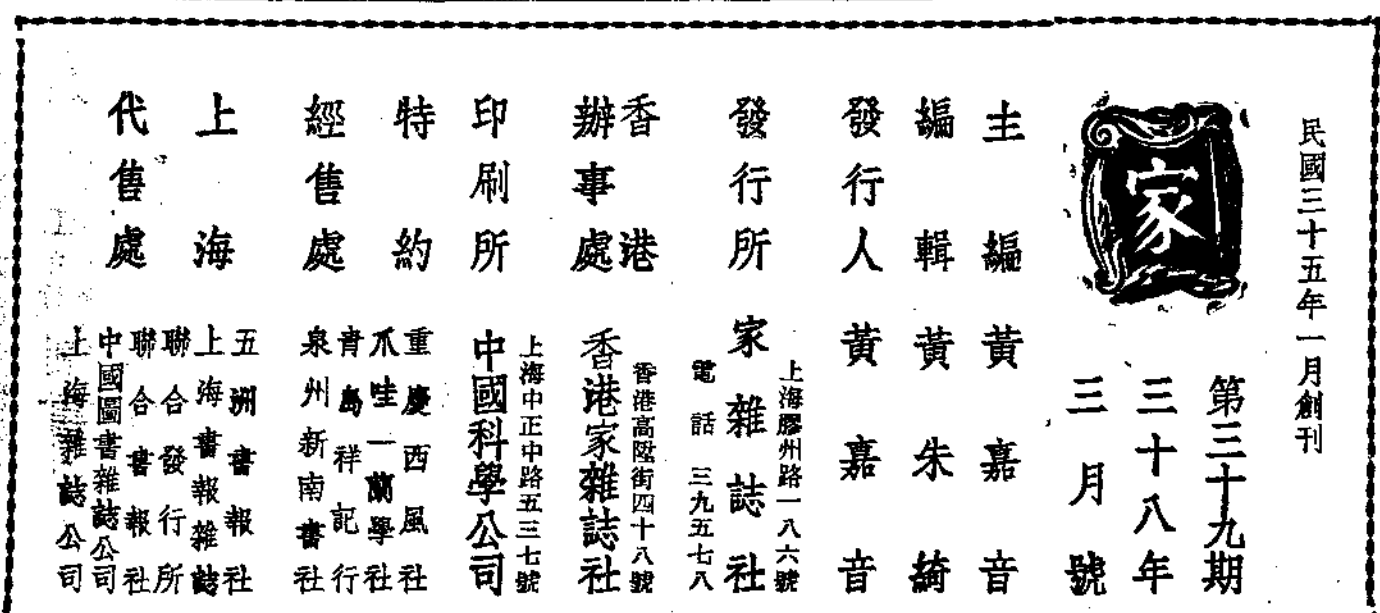 民國三十五年一月創刊
家
第三十九期
三十八年
三月號
主編黃嘉音
編輯黃朱綺
發行人黃嘉音
發行所家雜誌社
上海膠州路一八六號
電話三九五七八
香港辦事處
香港高陞街四十八號
香港家雜誌社
印刷所
上海中正中路五三七號
中國科學公司
特約經售處
重慶西風社
爪哇一蘭學社
青島祥記行
泉州新南書社
上海代售處
五洲書報社
上海書報雜誌社
聯合發行所
聯合書報社
中國圖書雜誌公司
上海雜誌公司